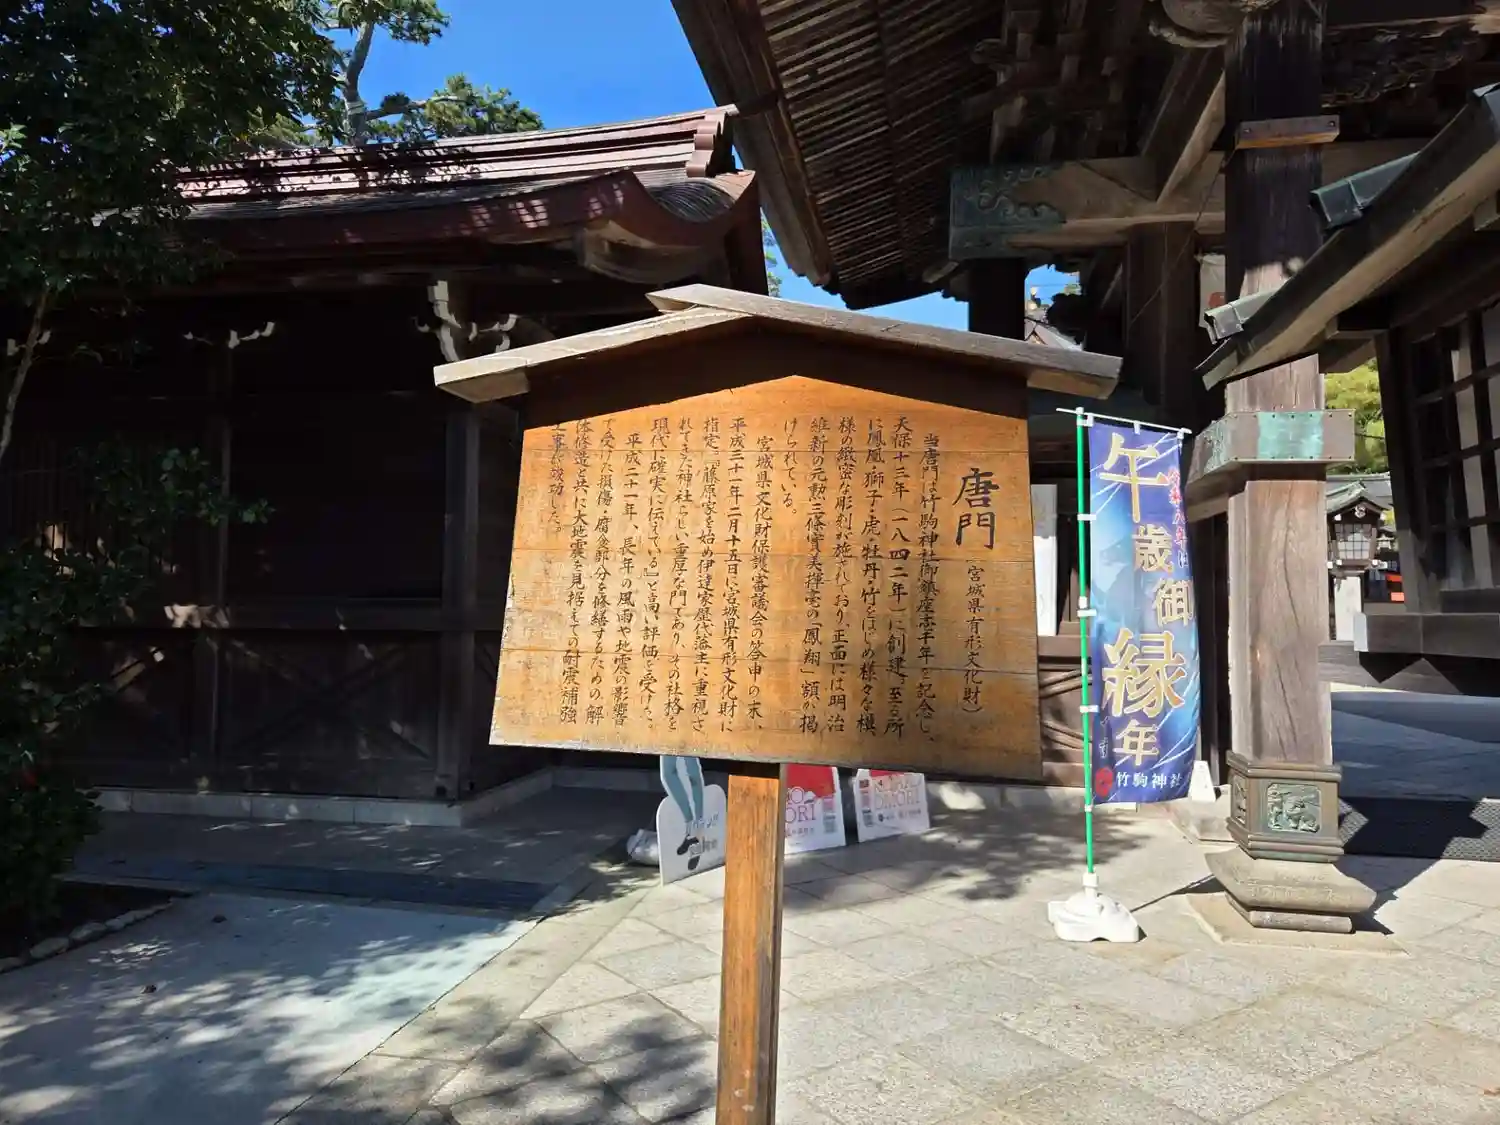 唐門
（宮城県有形文化財）
当唐門は竹駒神社御鎮座壱千年を記念し、
天保十三年（一八四二年）に創建。至る所
に鳳凰・獅子・虎・牡丹・竹をはじめ様々な模
様の緻密な彫刻が施されており、正面には明治
維新の元勲三條實美揮毫の「鳳翔」額が掲
げられている。
宮城県文化財保護審議会の答申の末、
平成三十一年二月十五日に宮城県有形文化財に
指定。『藤原家を始め伊達家歴代藩主に重視さ
れてきた神社らしい重厚な門であり、その社格を
現代に確実に伝えている』と高い評価を受けた。
平成二十一年、長年の風雨や地震の影響
で受けた損傷・腐食部分を修繕するための解
体修造と共に大地震を見据えての耐震補強
工事が竣功した。
午
歳
御
縁
年
竹駒神社